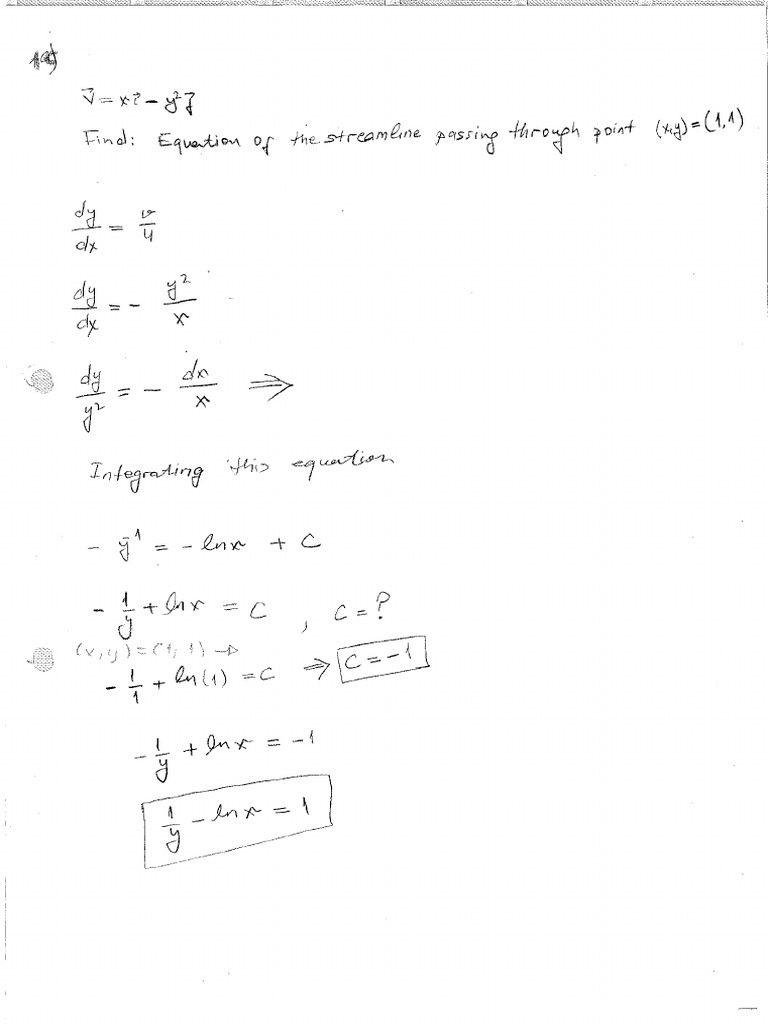 V⃗ = x i⃗ - y² j⃗
Find: Equation of the streamline passing through point (x,y) = (1,1)
dy/dx = v/u
dy/dx = - y²/x
dy/y² = - dx/x ⇒
Integrating this equation
- y⁻¹ = - ln x + C
- 1/y + ln x = C , C = ?
(x,y) = (1,1) →
- 1/1 + ln(1) = C ⇒ C = -1
- 1/y + ln x = -1
1/y - ln x = 1